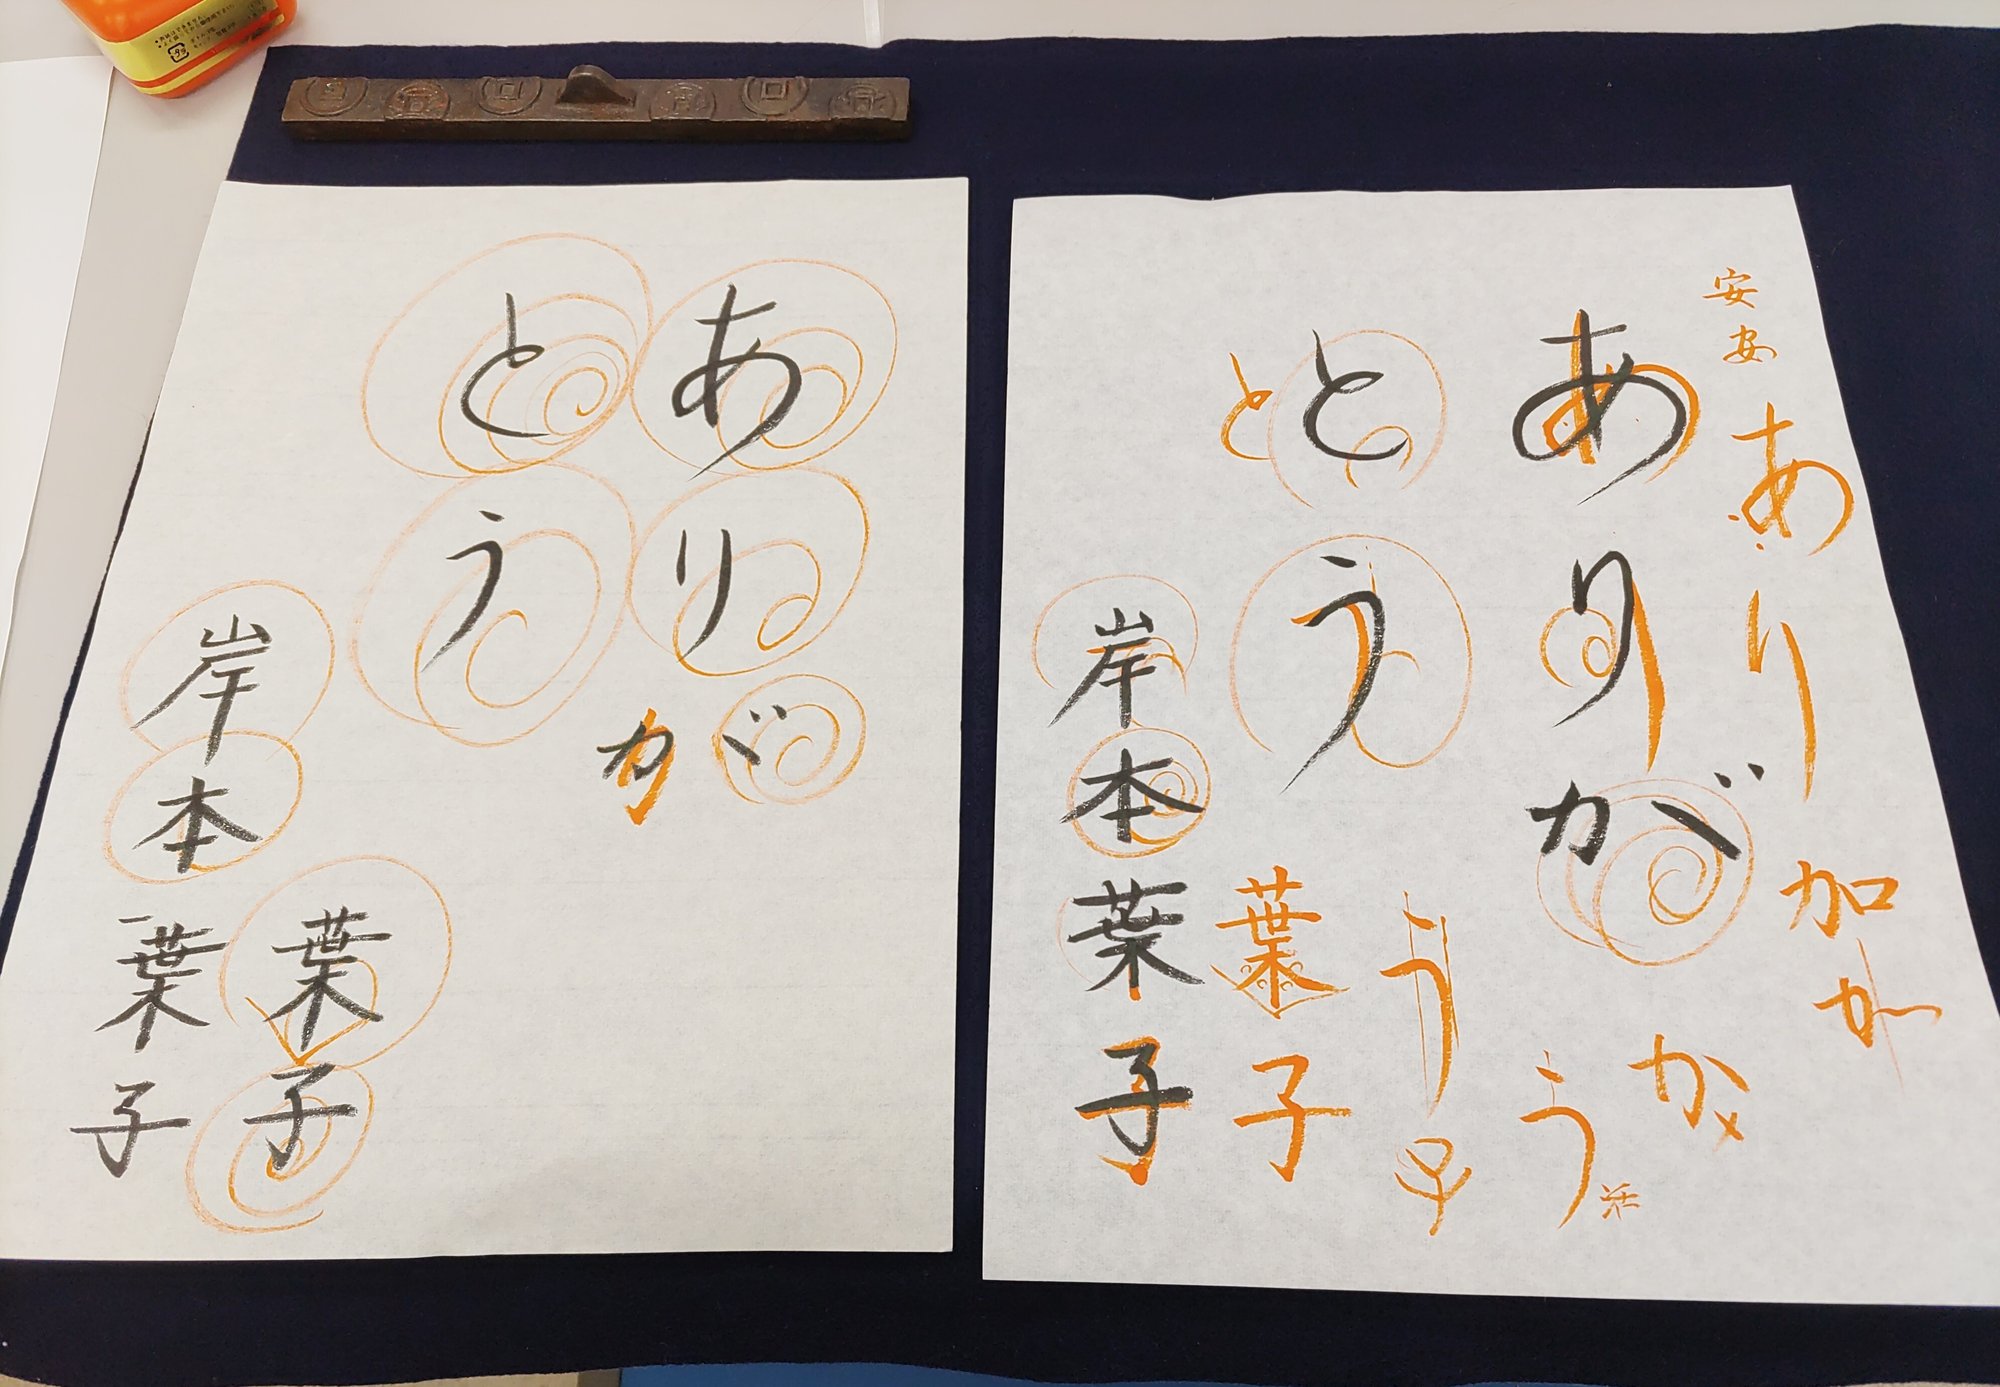 安
安
あり
加
か
か
ありが
とう
と
う
う
葉子
岸本葉子
ありが
か
とう
葉子
岸本葉子